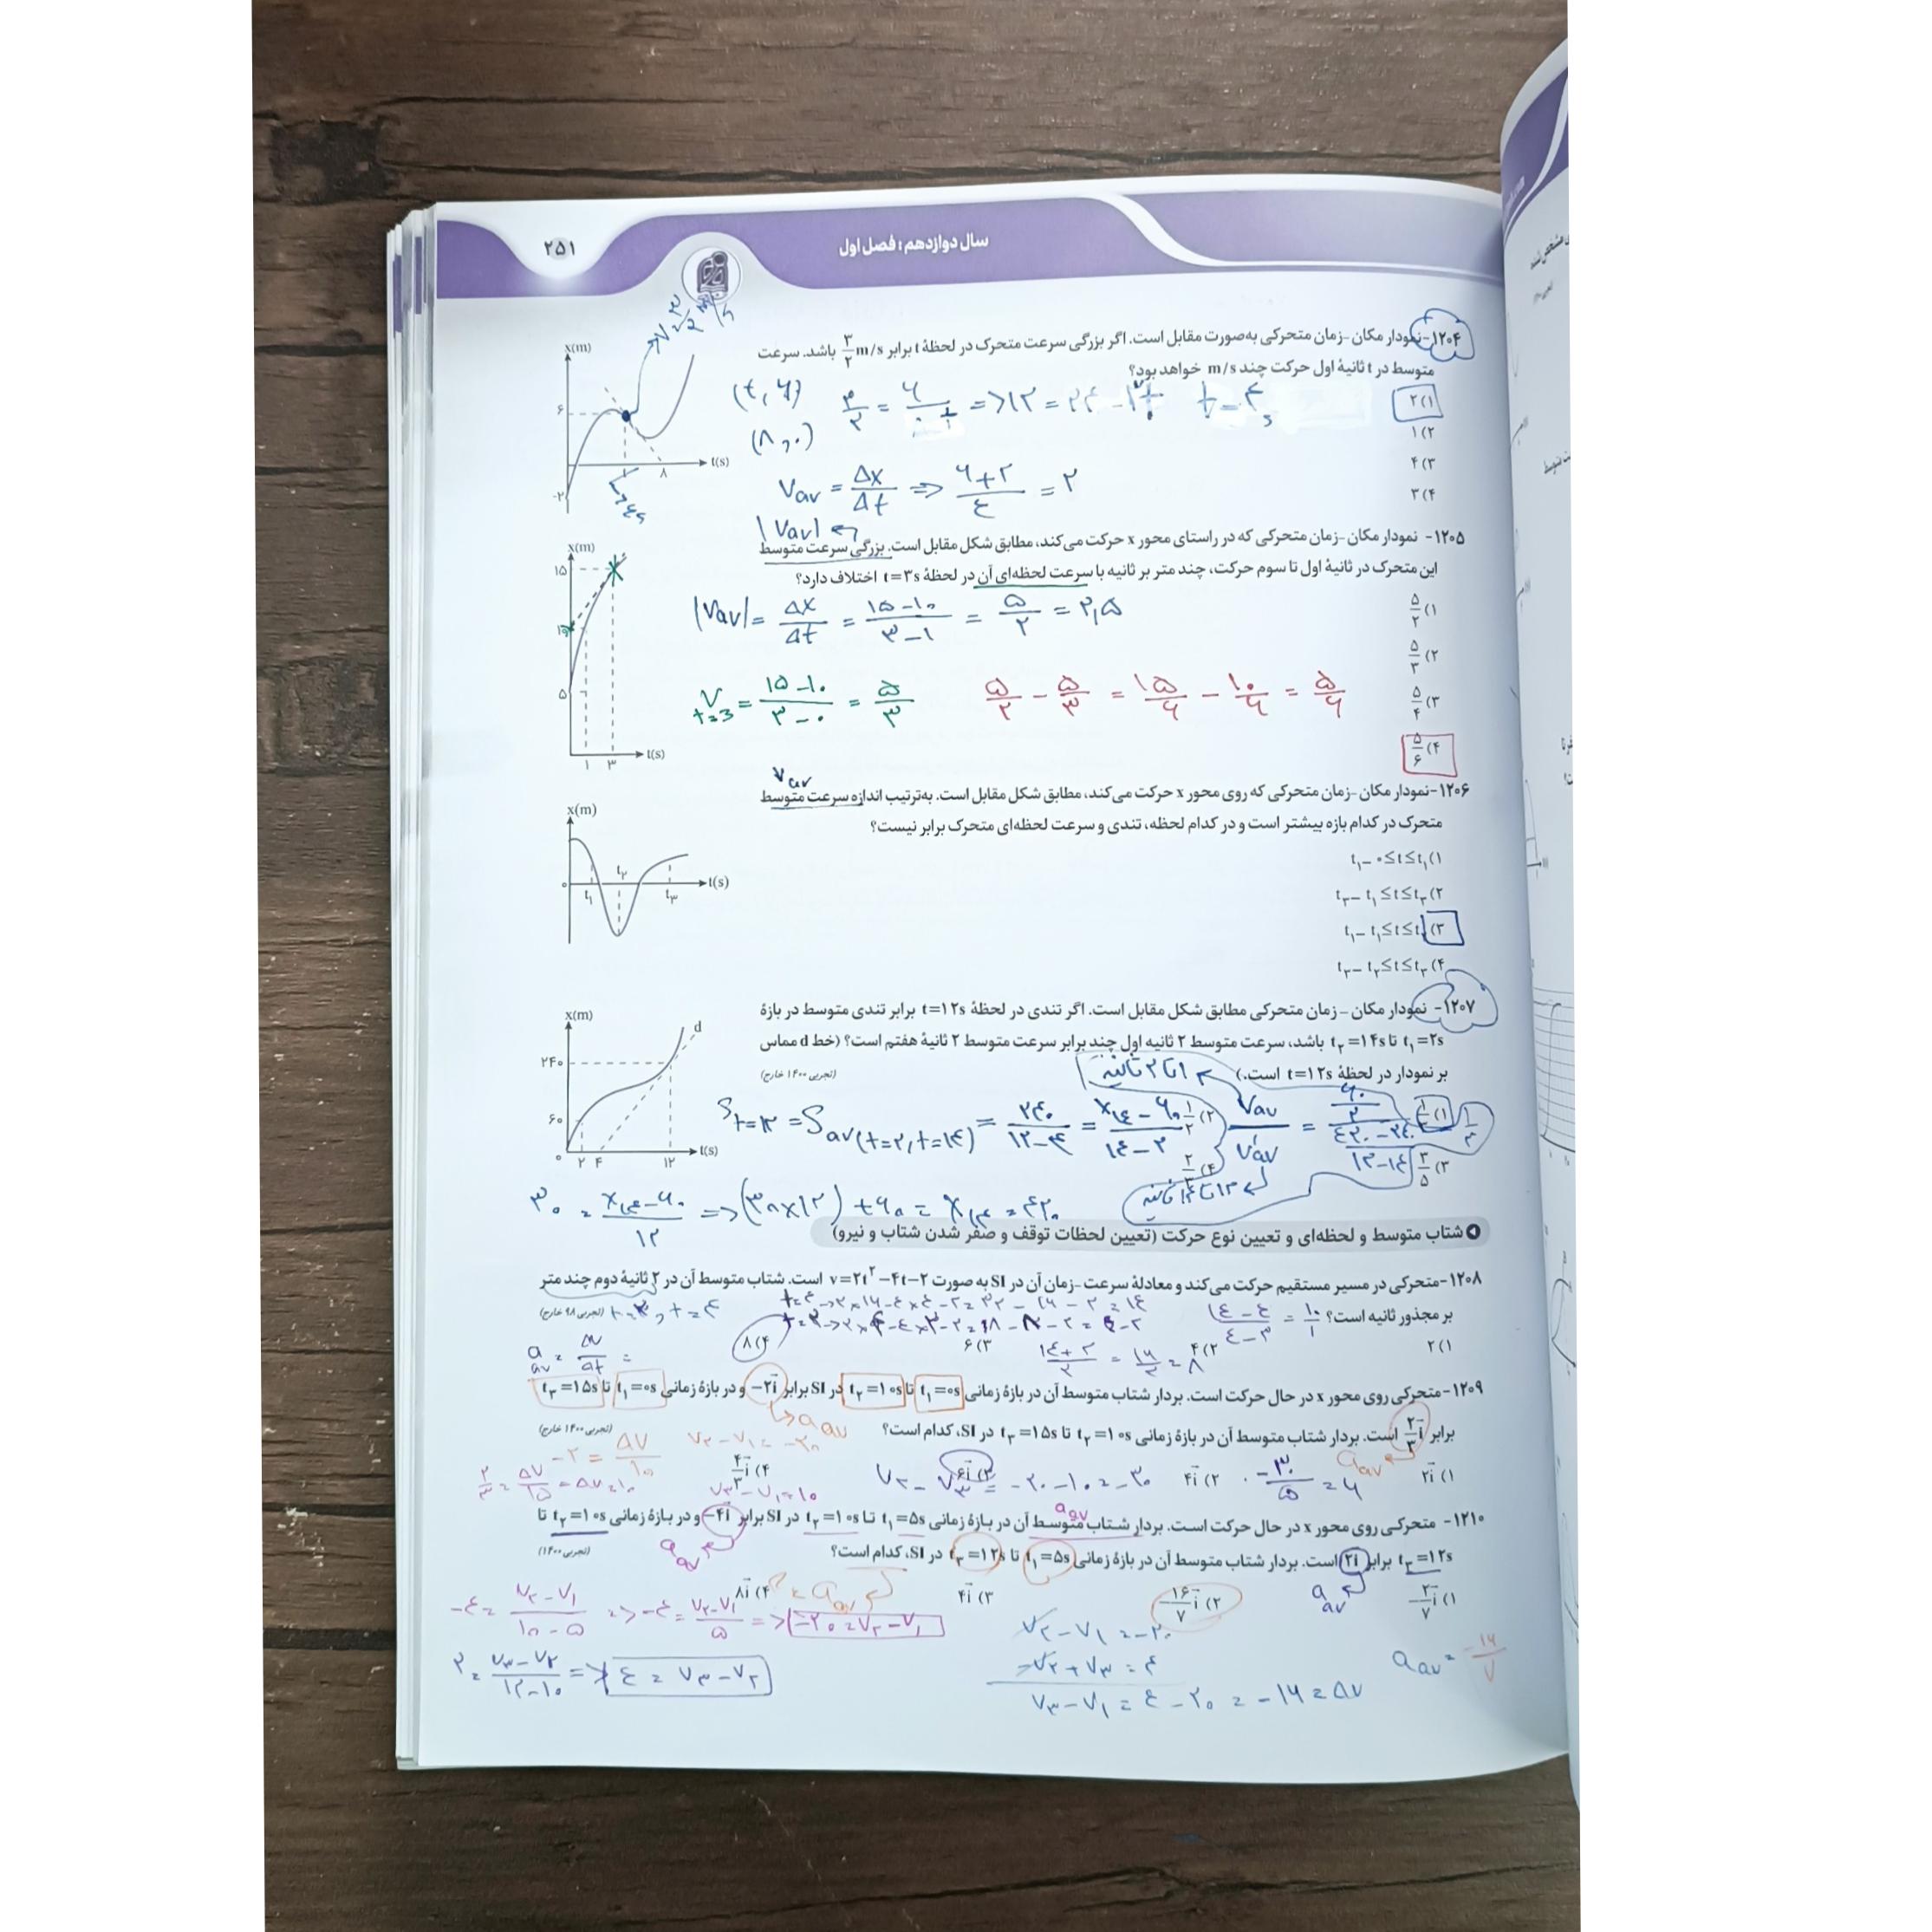 سال دوازدهم: فصل اول
۲۵۱
۱۲۰۴- نمودار مکان-زمان متحرکی به‌صورت مقابل است. اگر بزرگی سرعت متحرک در لحظهٔ t برابر ۳/۲ m/s باشد. سرعت
متوسط در t ثانیهٔ اول حرکت چند m/s خواهد بود؟
۱) ۲
۲) ۱
۳) ۴
۴) ۳
x(m)
۶
-۲
۸
t(s)
(t, ۶)
(۸, ۰)
t = ۴s
Vav = Δx/Δt => ۶+۲/۴ = ۲
|Vav|
۱۲۰۵- نمودار مکان-زمان متحرکی که در راستای محور x حرکت می‌کند، مطابق شکل مقابل است. بزرگی سرعت متوسط
این متحرک در ثانیهٔ اول تا سوم حرکت، چند متر بر ثانیه با سرعت لحظه‌ای آن در لحظهٔ t=۳s اختلاف دارد؟
۱) ۵/۲
۲) ۵/۳
۳) ۵/۴
۴) ۵/۶
x(m)
۱۵
۱۰
۵
۱ ۳
t(s)
|Vav| = Δx/Δt = ۱۵-۱۰/۳-۱ = ۵/۲ = ۲,۵
V t=3 = ۱۵-۱۰/۳-۰ = ۵/۳
۵/۲ - ۵/۳ = ۱۵/۶ - ۱۰/۶ = ۵/۶
Vav
۱۲۰۶- نمودار مکان-زمان متحرکی که روی محور x حرکت می‌کند، مطابق شکل مقابل است. به‌ترتیب اندازه سرعت متوسط
متحرک در کدام بازه بیشتر است و در کدام لحظه، تندی و سرعت لحظه‌ای متحرک برابر نیست؟
۱) ۰≤t≤t₁ – t₁
۲) t₁≤t≤t₃ – t₃
۳) t₁≤t≤t₂ – t₁
۴) t₂≤t≤t₃ – t₃
x(m)
۰
t₁
t₂
t₃
t(s)
۱۲۰۷- نمودار مکان – زمان متحرکی مطابق شکل مقابل است. اگر تندی در لحظهٔ t=۱۲s برابر تندی متوسط در بازهٔ
t₁=۲s تا t₂=۱۴s باشد، سرعت متوسط ۲ ثانیه اول چند برابر سرعت متوسط ۲ ثانیهٔ هفتم است؟ (خط d مماس
بر نمودار در لحظهٔ t=۱۲s است.)
(تجربی ۱۴۰۰ خارج)
۲) ۱/۲
۳) ۳/۵
x(m)
d
۲۴۰
۶۰
۰ ۲ ۴ ۱۲
t(s)
S t=۱۲ = Sav(t=۲, t=۱۴) = ۲۴۰/۱۲-۴ = x₁₄-۶۰/۱۴-۲
۳۰ = x₁₄-۶۰/۱۲ => (۳۰×۱۲)+۶۰ = x₁₄ = ۴۲۰
شتاب متوسط و لحظه‌ای و تعیین نوع حرکت (تعیین لحظات توقف و صفر شدن شتاب و نیرو)
۱۲۰۸- متحرکی در مسیر مستقیم حرکت می‌کند و معادلهٔ سرعت-زمان آن در SI به صورت v=۲t²-۴t-۲ است. شتاب متوسط آن در ۲ ثانیهٔ دوم چند متر
بر مجذور ثانیه است؟
(تجربی ۹۸ خارج)
۱) ۲
۲) ۴
۳) ۶
۴) ۸
t=۴ → ۲×۱۶-۴×۴-۲ = ۳۲-۱۶-۲ = ۱۴
a av = Δv/Δt =
۱۴+۲/۲ = ۱۶/۲ = ۸
۱۲۰۹- متحرکی روی محور x در حال حرکت است. بردار شتاب متوسط آن در بازهٔ زمانی t₁=۰s تا t₂=۱۰s در SI برابر -۲i و در بازهٔ زمانی t₁=۰s تا t₃=۱۵s
برابر ۲/۳ i است. بردار شتاب متوسط آن در بازهٔ زمانی t₂=۱۰s تا t₃=۱۵s در SI، کدام است؟
(تجربی ۱۴۰۰ خارج)
۱) ۲i
۲) ۴i
۳) ۶i
۴) ۴/۳ i
a av
-۲ = ΔV/۱۰
V₂-V₁ = -۲۰
۲/۳ = ΔV/۱۵ = ΔV = ۱۰
V₃-V₁ = ۱۰
V₂-V₃ = -۲۰-۱۰ = -۳۰
-۳۰/۵ = ۶
۱۲۱۰- متحرکی روی محور x در حال حرکت است. بردار شتاب متوسط آن در بازهٔ زمانی t₁=۵s تا t₂=۱۰s در SI برابر -۴i و در بازهٔ زمانی t₂=۱۰s تا
t₃=۱۲s برابر ۲i است. بردار شتاب متوسط آن در بازهٔ زمانی t₁=۵s تا t₃=۱۲s در SI، کدام است؟
(تجربی ۱۴۰۰)
۱) -۲/۷ i
۲) -۱۶/۷ i
۳) ۴i
۴) ۸i
-۴ = V₂-V₁/۱۰-۵ => -۴ = V₂-V₁/۵ => -۲۰ = V₂-V₁
۲ = V₃-V₂/۱۲-۱۰ => ۴ = V₃-V₂
V₂-V₁ = -۲۰
-V₂+V₃ = ۴
V₃-V₁ = ۴-۲۰ = -۱۶ = ΔV
a av = -۱۶/۷